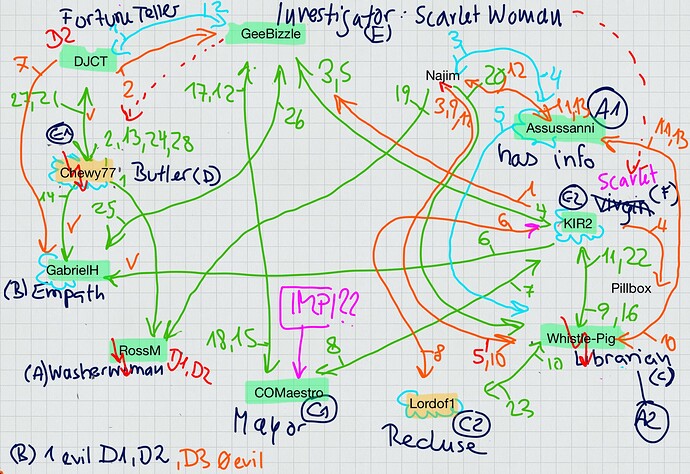 Fortune Teller
Investigator: Scarlet Woman
(E)
D2
1
2
GeeBizzle
DJCT
7
2
3
20
12
Najim
4
27,21
17,12
26
3,5
19
3,9,12
5
11,13
A1
Assussanni
has info
11,13
E1
2,13,24,28
Chewy77
Butler (D)
14
25
1
4
Scarlet
Virgin
(F)
E2
KIR2
6
6
4
GabrielH
(B) Empath
7
11,22
Pillbox
IMP!22
9,16
18,15
8
RossM
D1, D2
(A) Washerwoman
8
5,10
10
10
Whistle-Pig
Librarian
(C)
COMaestro
Mayor
C1
Lordof1
C2
Recluse
23
A2
(B) 1 evil D1, D2, D3 0evil